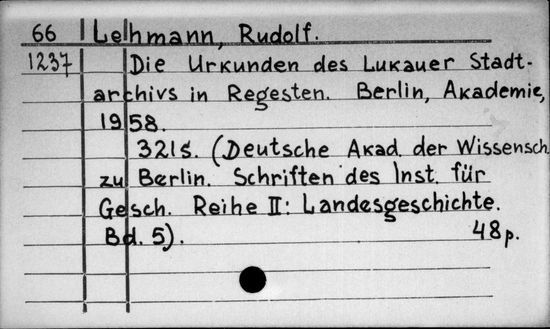 66 Lehmann, Rudolf.
1237 Die Urkunden des Lukauer Stadt-
archivs in Regesten. Berlin, Akademie,
1958.
321s. (Deutsche Akad. der Wissensch
zu Berlin. Schriften des Inst. für
Gesch. Reihe II: Landesgeschichte.
Bd. 5). 48p.